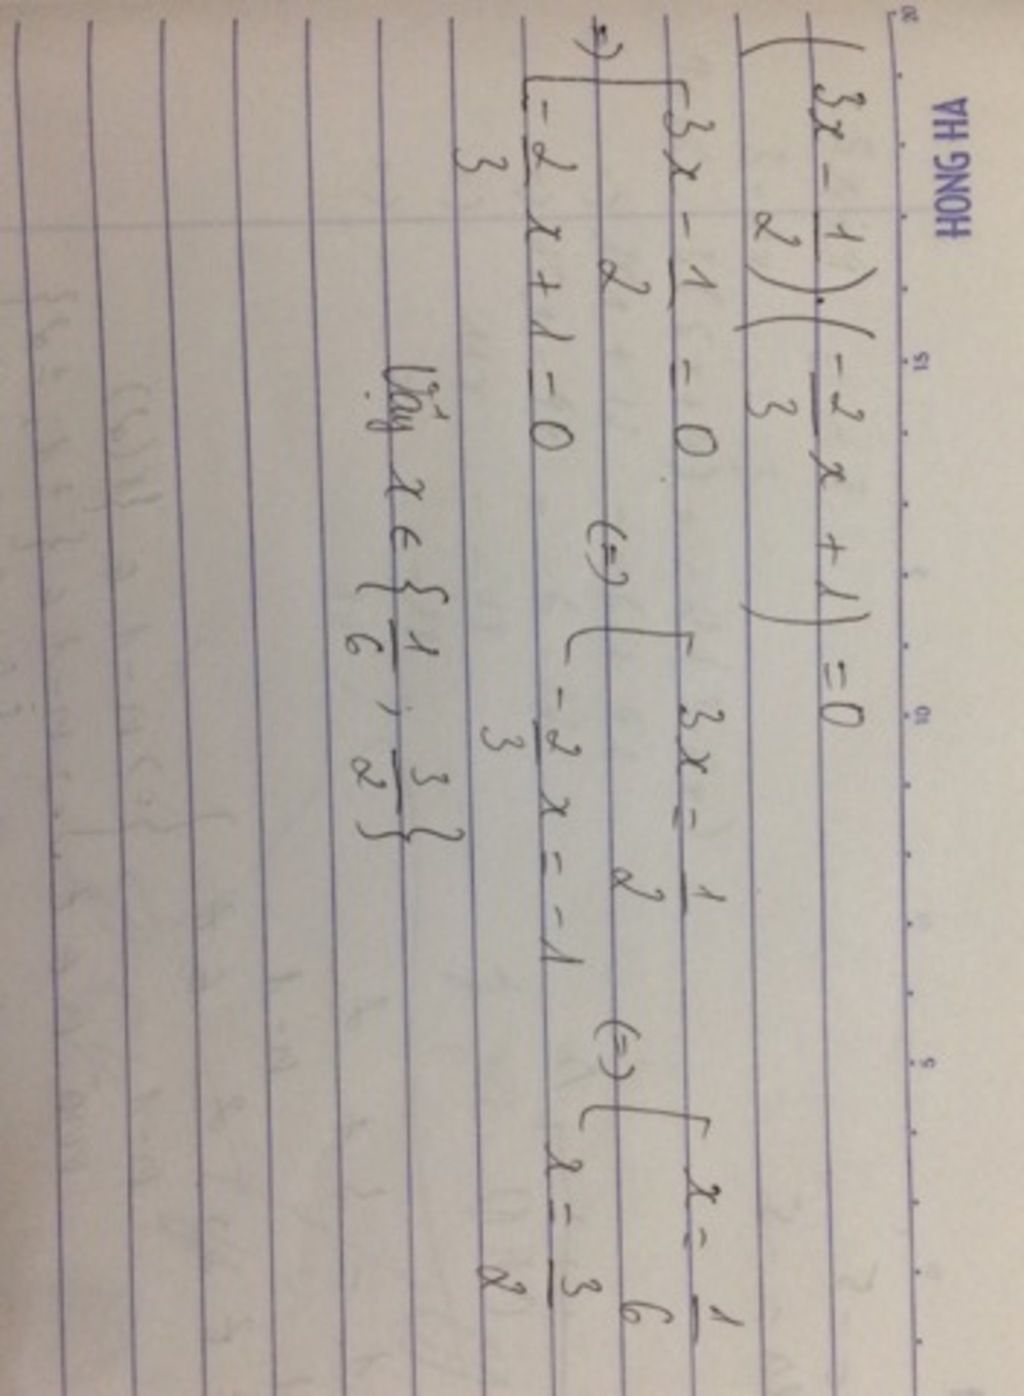 HONG HA
20 15 10 5
(3x - 1/2).(-2/3 x + 1) = 0
=> [ 3x - 1/2 = 0 (=) [ 3x = 1/2 (=) [ x = 1/6
-2/3 x + 1 = 0 -2/3 x = -1 x = 3/2
Vậy x ∈ {1/6 ; 3/2}